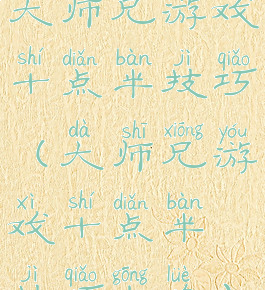 大师兄游戏
shí diǎn bàn jì qiǎo
十点半技巧
dà shī xiōng yóu
（大师兄游
xì shí diǎn bàn
戏十点半
jì qiǎo gōng lüè